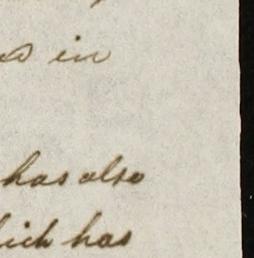 in
has also
which has